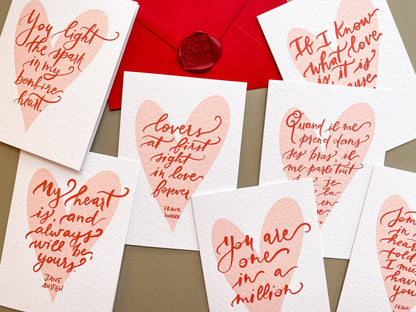 You light
the spark
in my
bonfire
heart.
If I know
what love
is, it is
lovers
at first
sight
in love
forever
FRANK
SINATRA
Quand il me
prend dans
ses bras, il
me parle tout
My heart
is, and
always
will be,
yours.
JANE
AUSTEN
You are
one
in a
million
in
heart
told